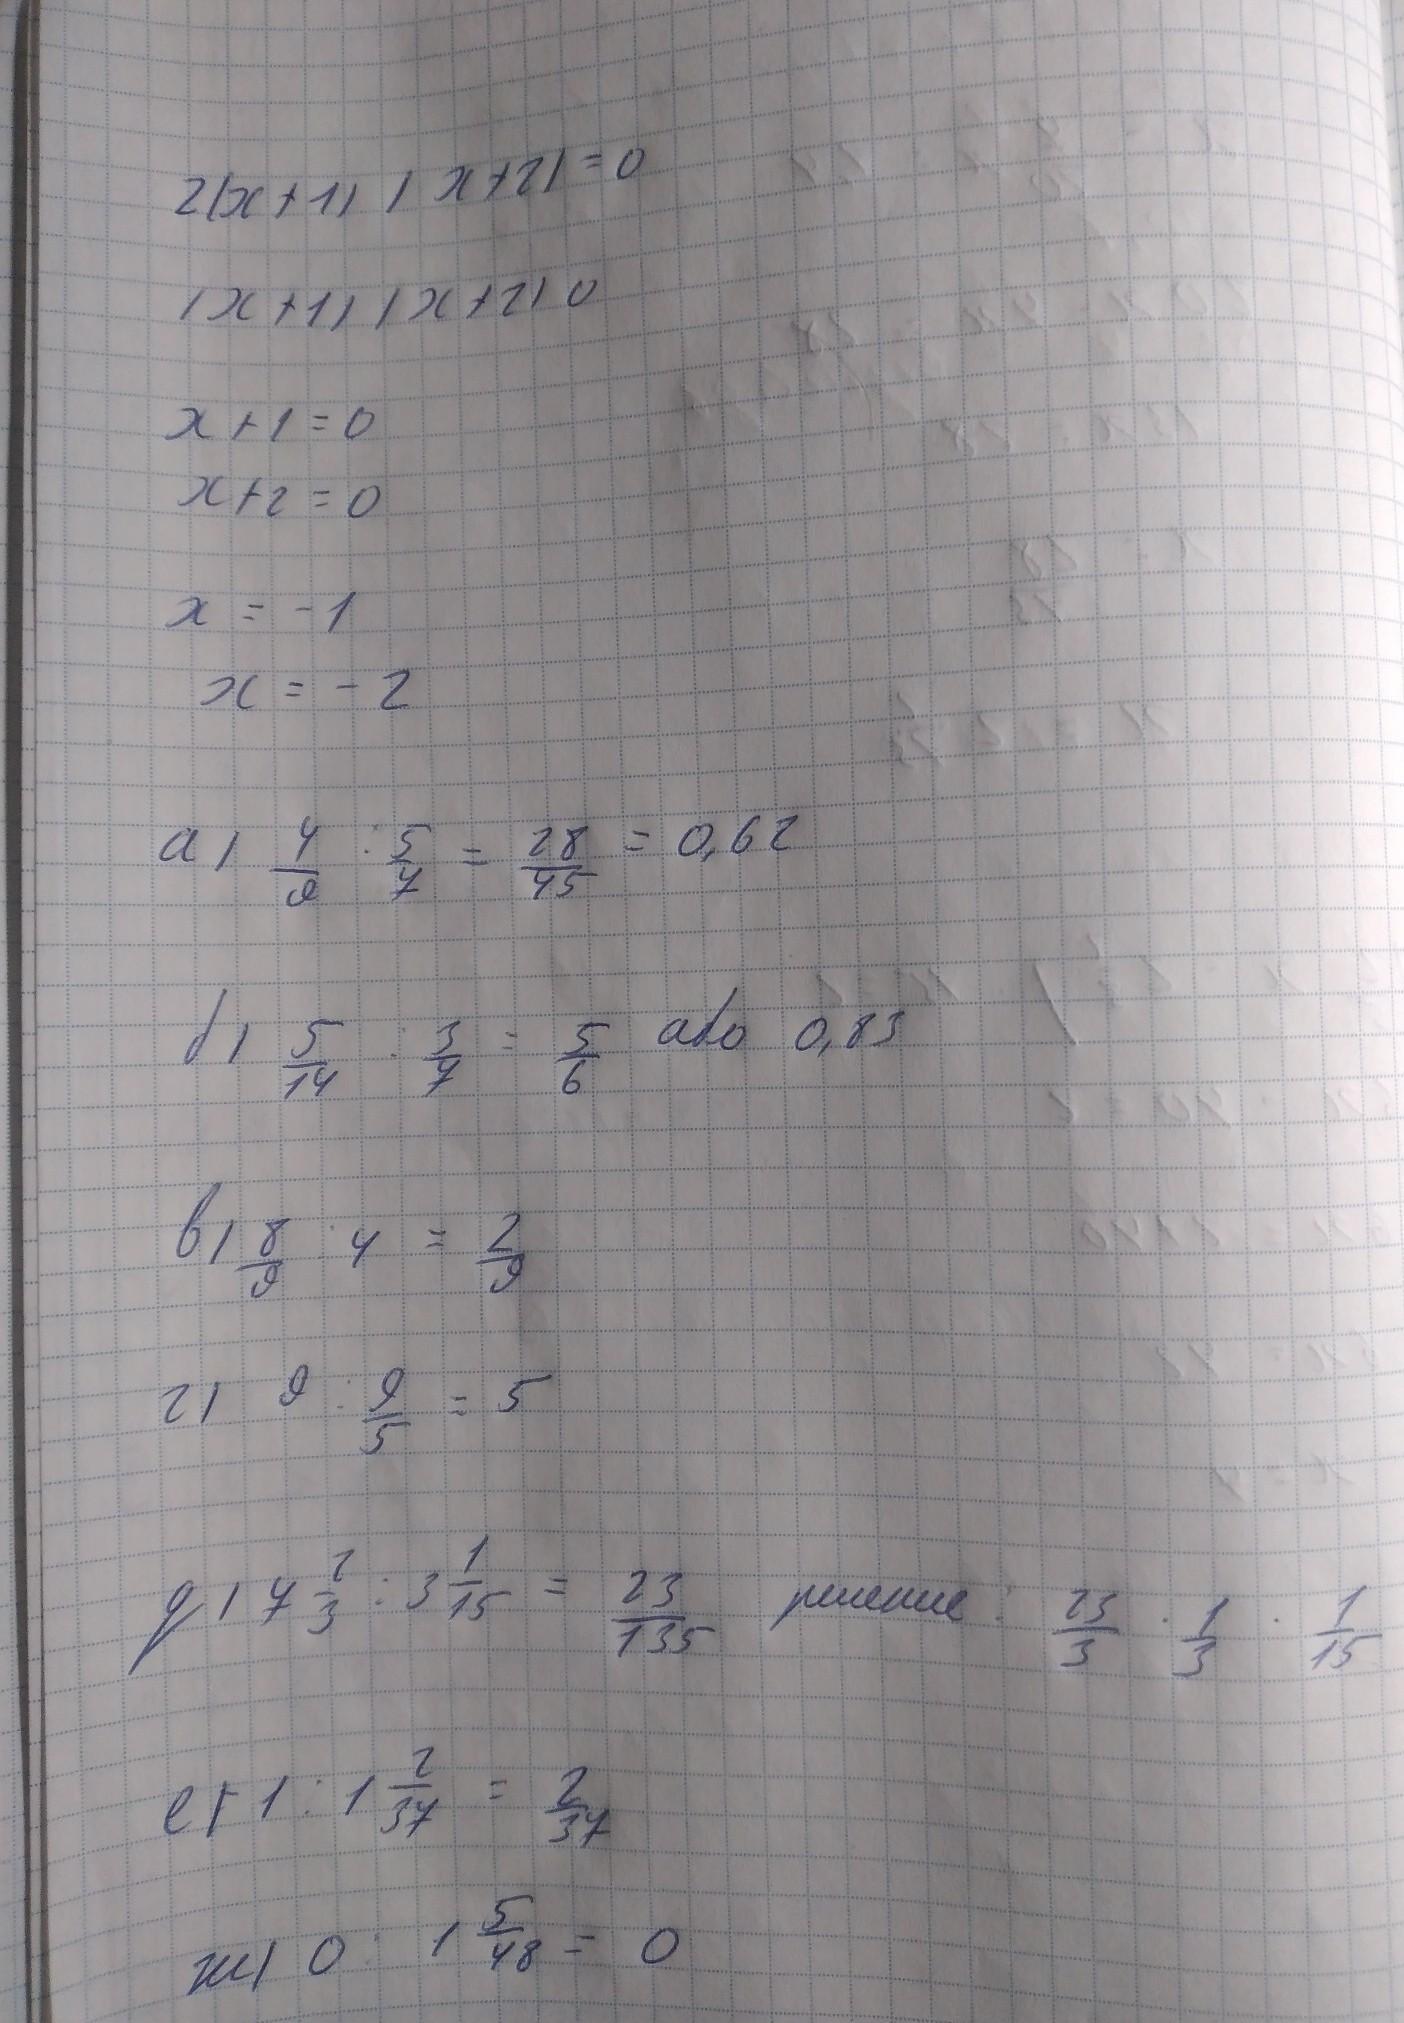 2(x+1) (x+2)=0
(x+1) (x+2) 0
x+1=0
x+2=0
x = -1
x = -2
а) 4/9 : 5/7 = 28/45 = 0,62
б) 5/14 : 3/7 = 5/6 або 0,83
в) 8/9 : 4 = 2/9
г) 9 : 9/5 = 5
д) 7 2/3 : 3 1/15 = 23/135 решение : 23/3 · 1/3 · 1/15
е) 1 : 1 2/37 = 2/37
ж) 0 : 1 5/48 = 0